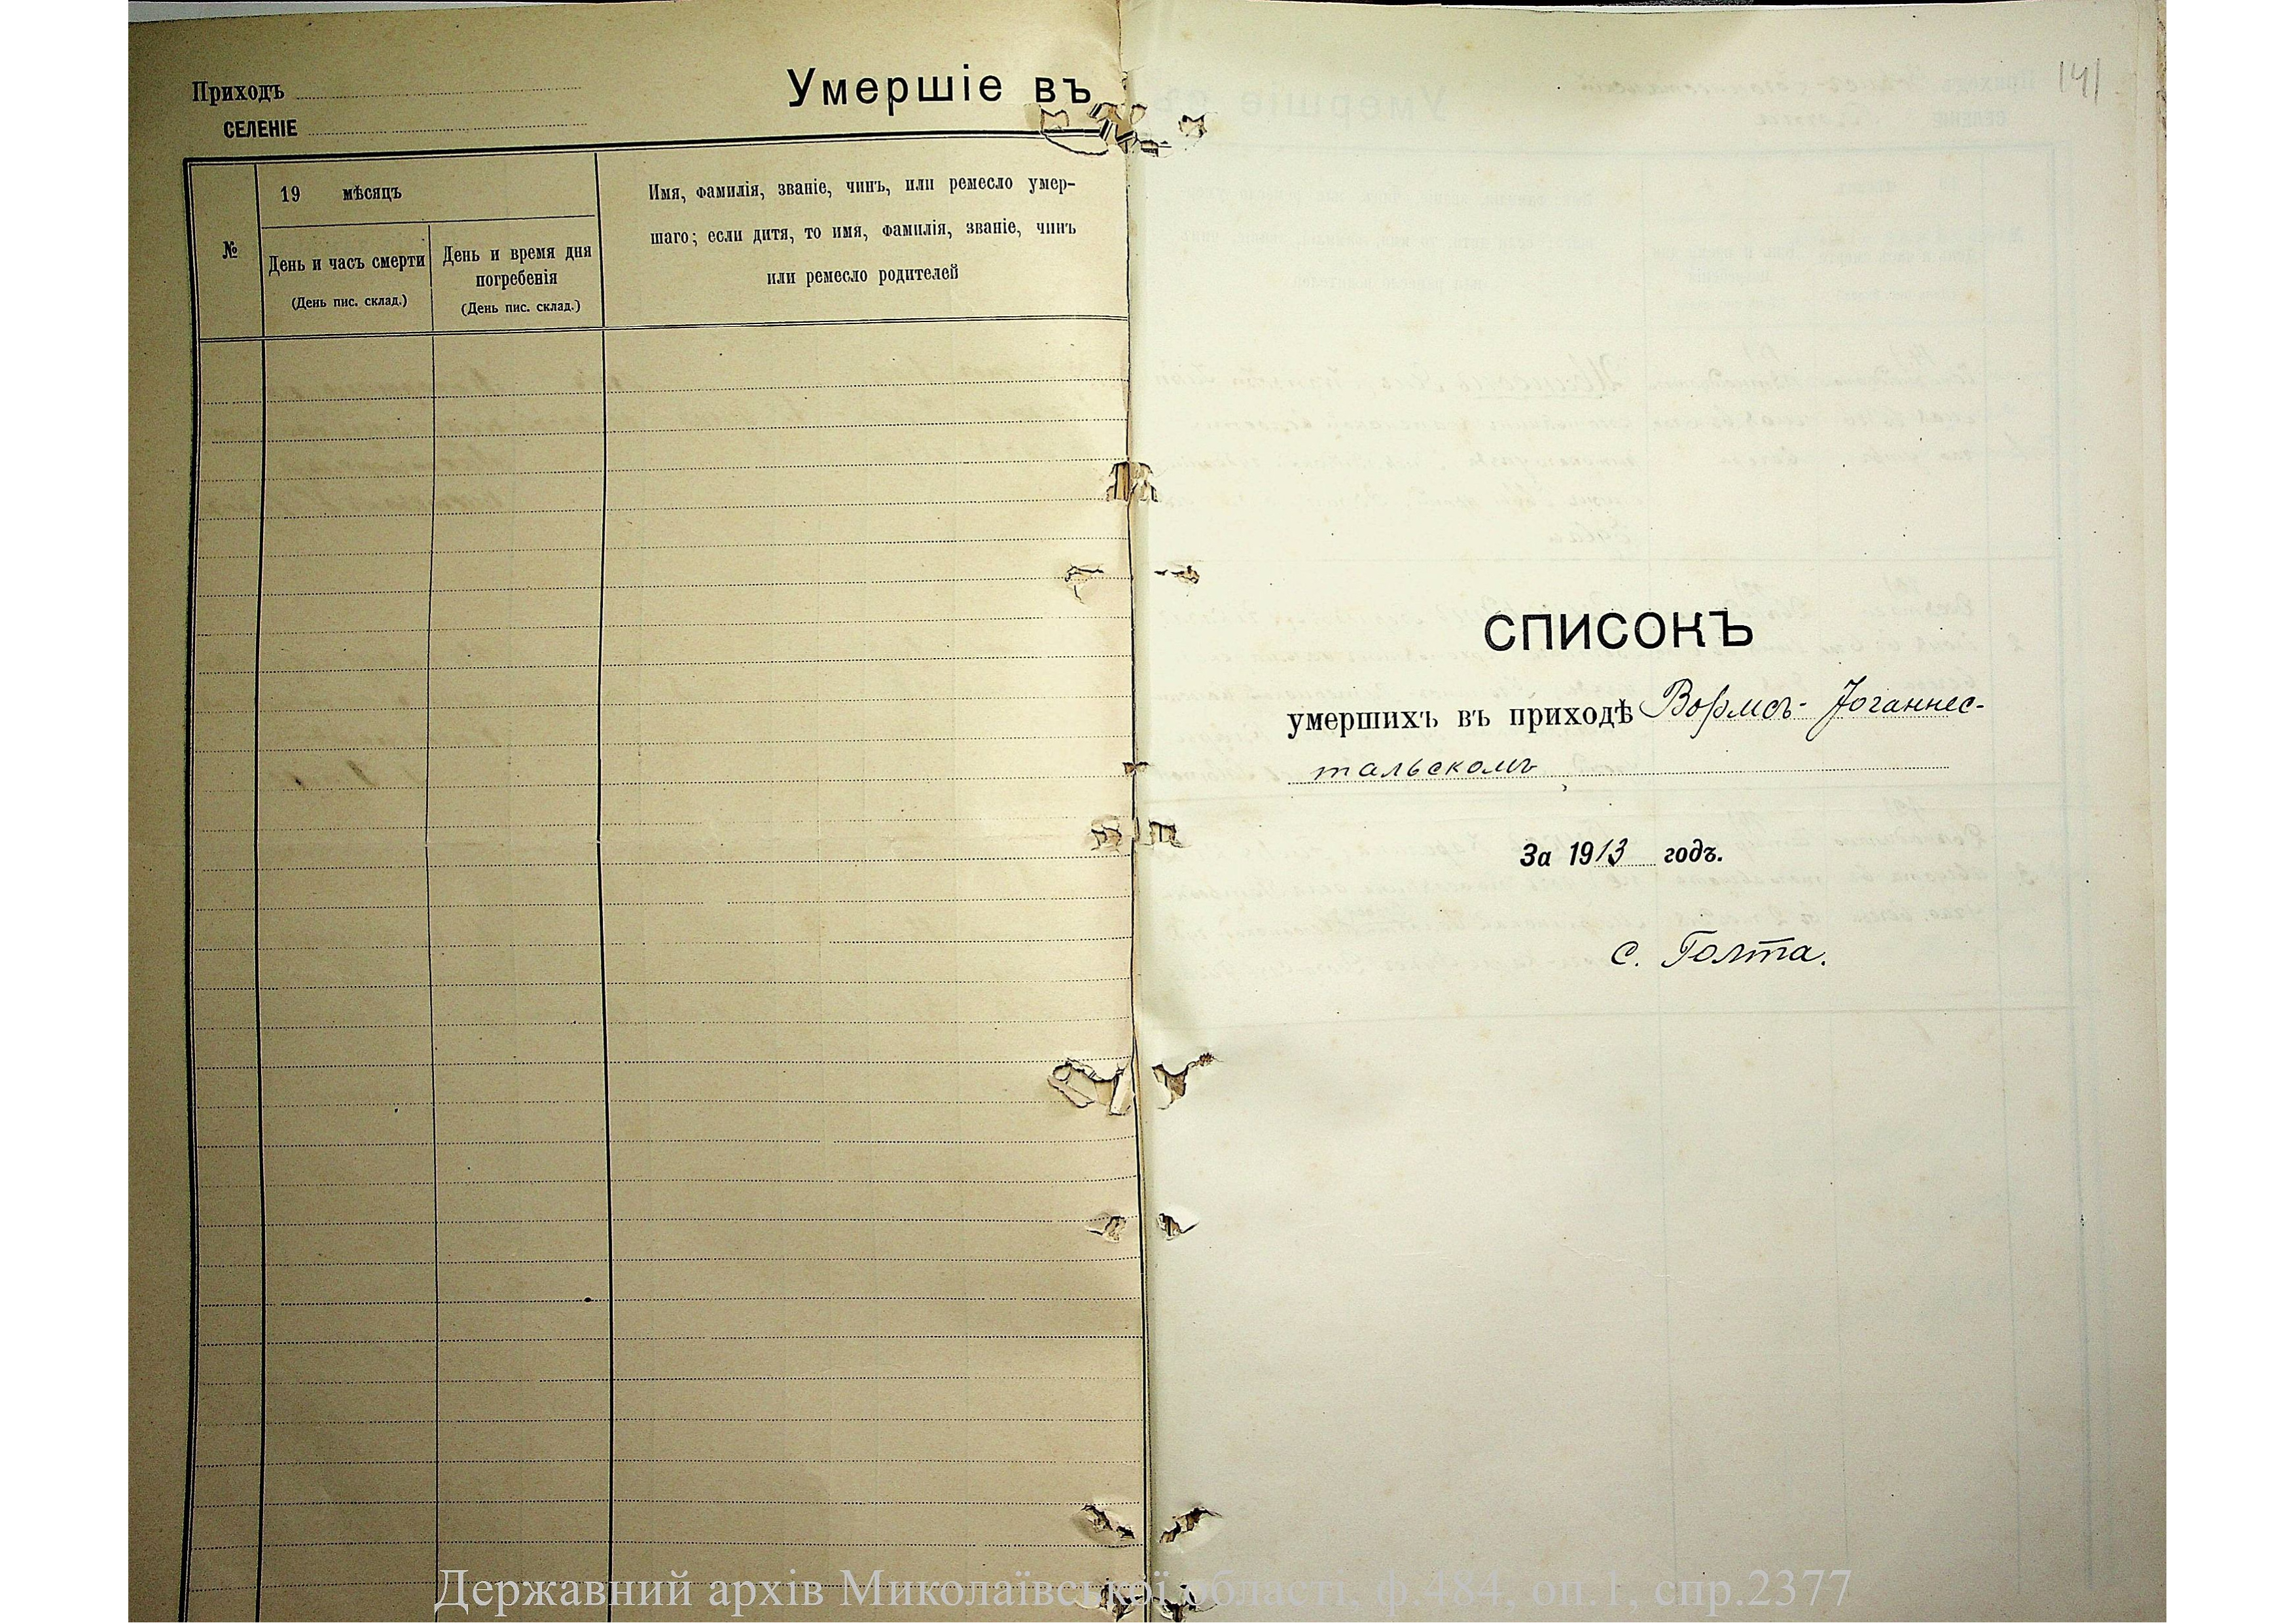 Приходъ
СЕЛЕНІЕ
Умершіе въ
№
19 мѣсяцъ
День и часъ смерти
(День пис. склад.)
День и время дня
погребенія
(День пис. склад.)
Имя, фамилія, званіе, чинъ, или ремесло умер-
шаго; если дитя, то имя, фамилія, званіе, чинъ
или ремесло родителей
141
СПИСОКЪ
умершихъ въ приходѣ Вормсъ-Іоганнес-
тальскомъ
За 1913 годъ.
с. Голта.
Державний архів Миколаївської області, ф.484, оп.1, спр.2377